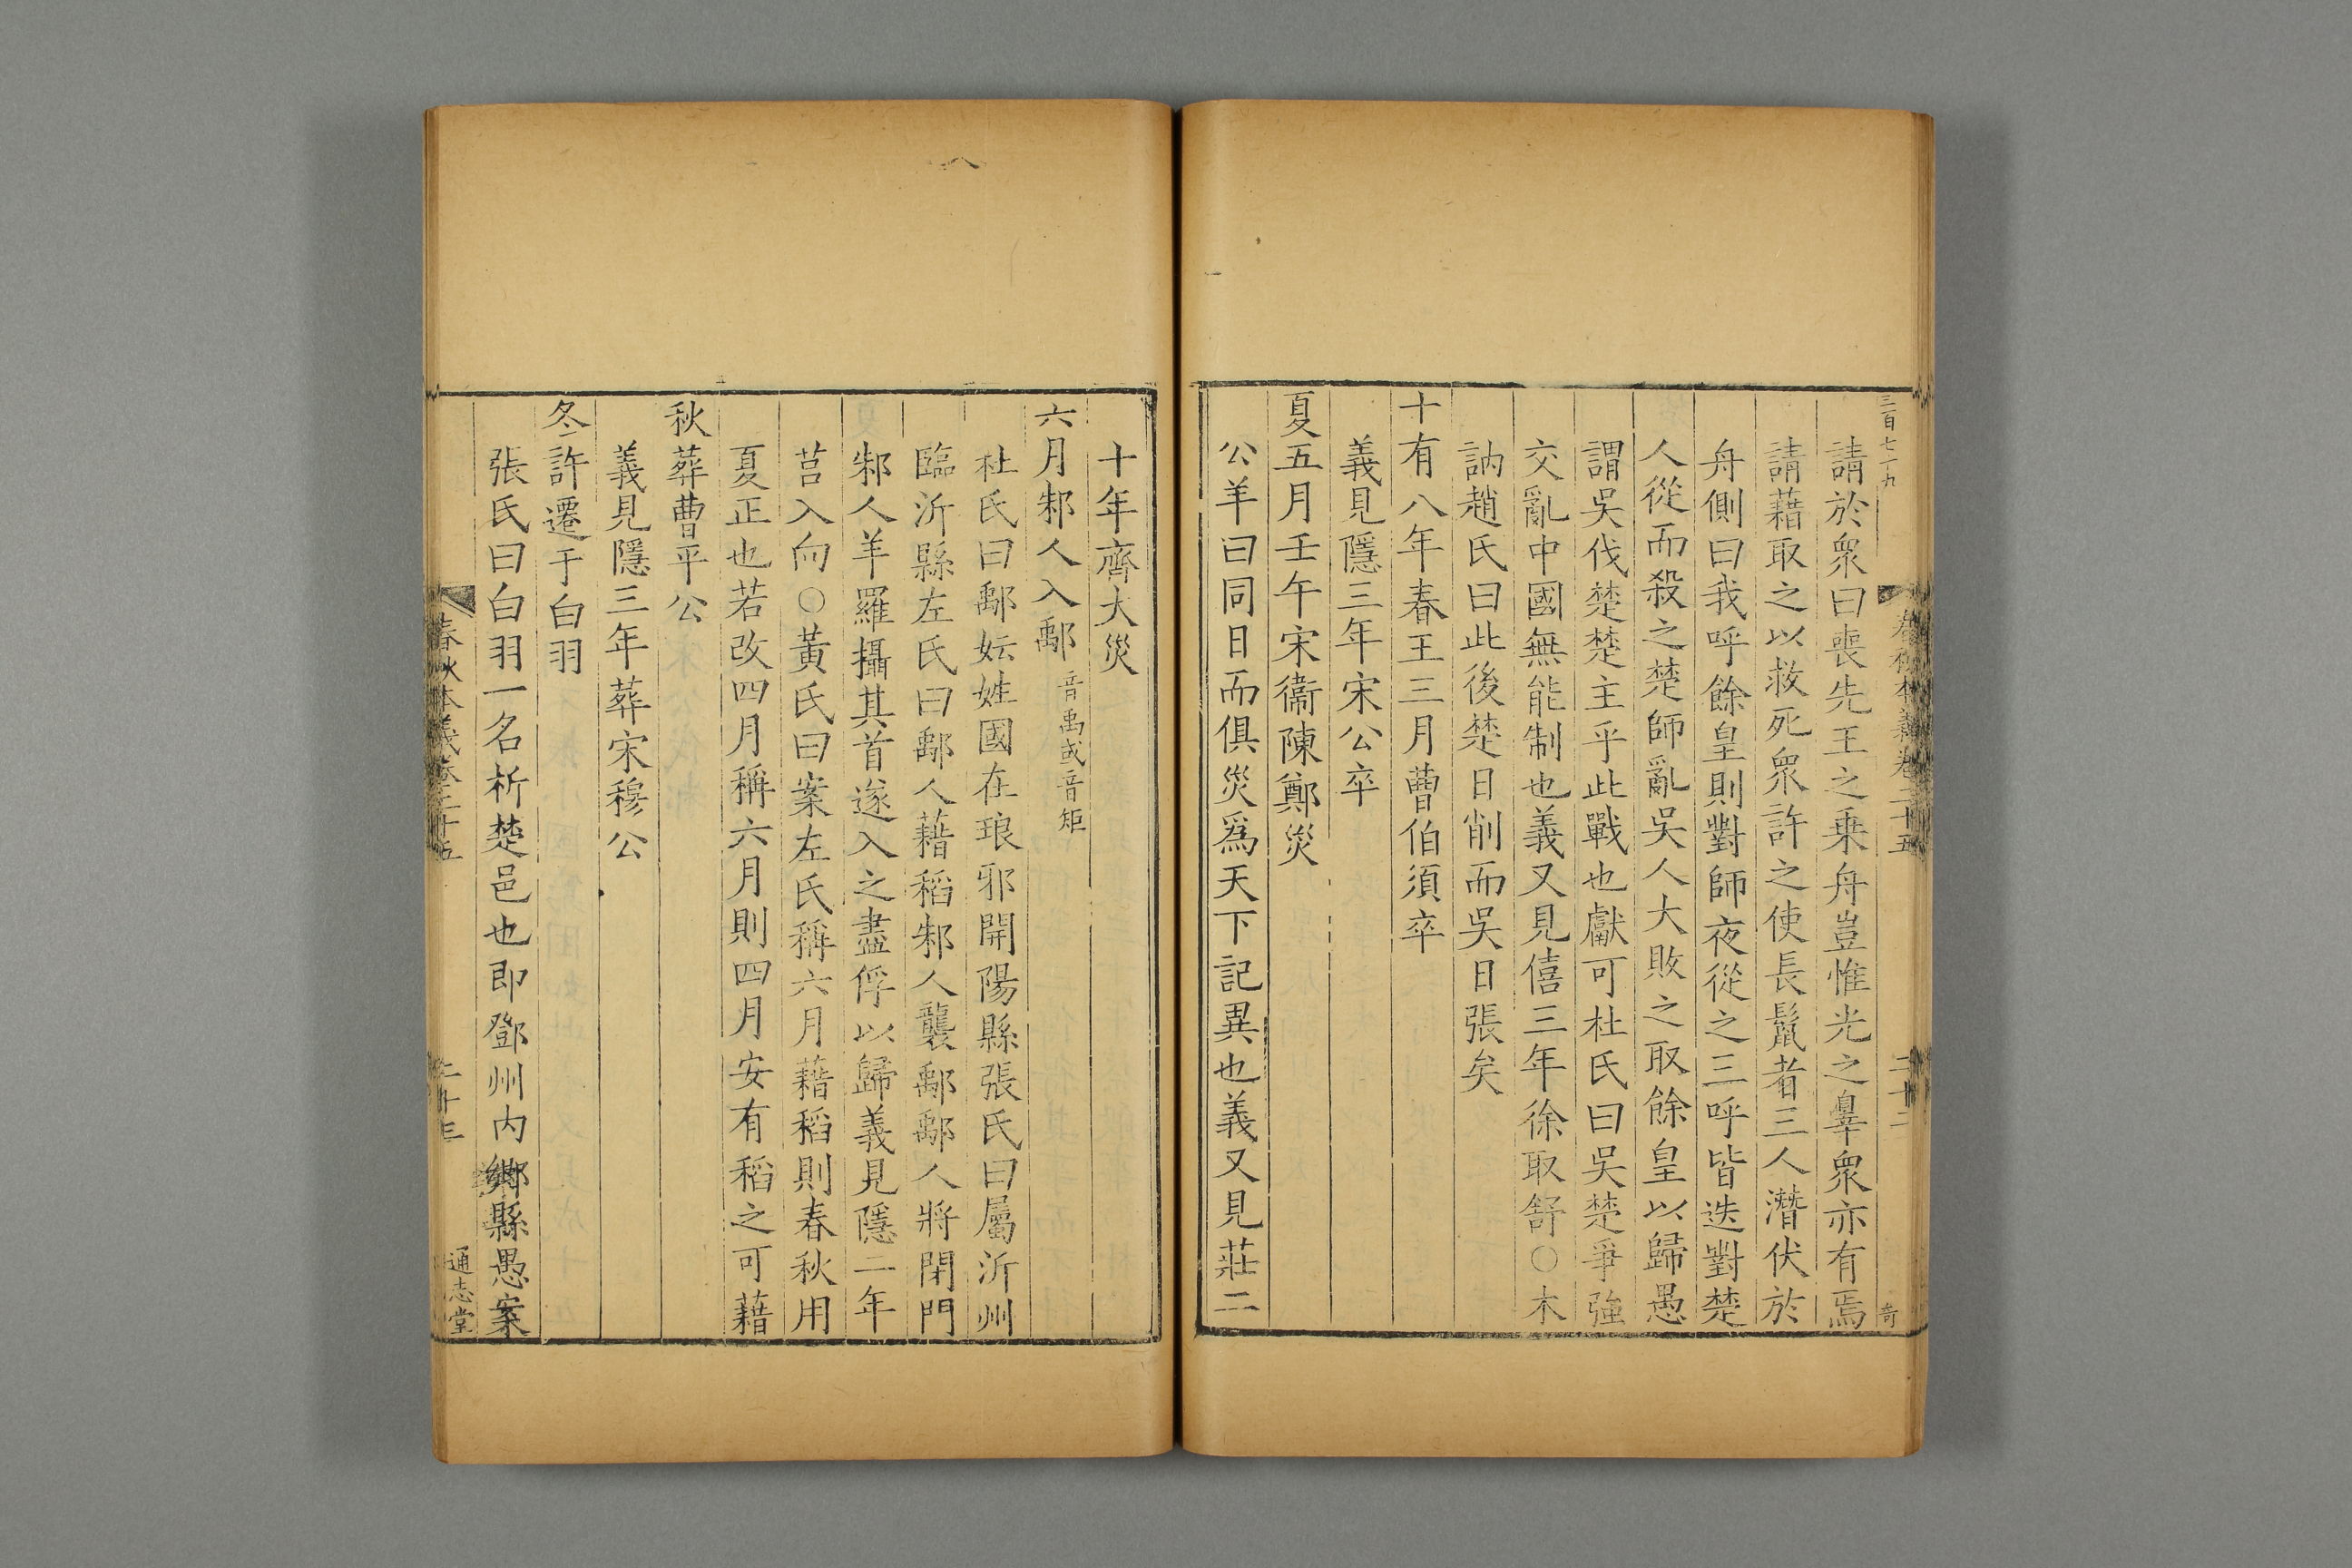 三百七十九
春秋本義卷二十五
二十二
奇
請於衆曰喪先王之乗舟豈惟光之辠衆亦有焉
請藉取之以救死衆許之使長鬛者三人潛伏於
舟側曰我呼餘皇則對師夜從之三呼皆迭對楚
人從而殺之楚師亂吳人大敗之取餘皇以歸愚
謂吳伐楚楚主乎此戰也獻可杜氏曰吳楚爭強
交亂中國無能制也義又見僖三年徐取舒○木
訥趙氏曰此後楚日削而吳日張矣
十有八年春王三月曹伯須卒
義見隱三年宋公卒
夏五月壬午宋衞陳鄭災
公羊曰同日而俱災爲天下記異也義又見莊二
十年齊大災
六月邾人入鄅音禹或音矩
杜氏曰鄅妘姓國在琅邪開陽縣張氏曰屬沂州
臨沂縣左氏曰鄅人藉稻邾人襲鄅鄅人將閉門
邾人羊羅攝其首遂入之盡俘以歸義見隱二年
莒入向○黃氏曰案左氏稱六月藉稻則春秋用
夏正也若改四月稱六月則四月安有稻之可藉
秋葬曹平公
義見隱三年葬宋穆公
冬許遷于白羽
張氏曰白羽一名析楚邑也即鄧州内鄉縣愚案
春秋本義卷二十五
二十三
通志堂